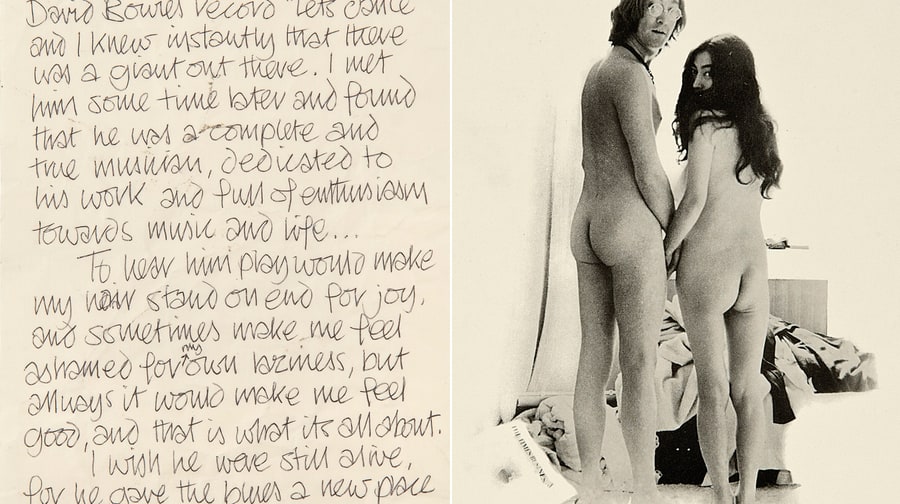 David Bowies record "Lets dance
and I knew instantly that there
was a giant out there. I met
him some time later and found
that he was a complete and
true musician, dedicated to
his work and full of enthusiasm
towards music and life...
To hear him play would make
my hair stand on end for joy,
and sometimes make me feel
ashamed for my own laziness, but
always it would make me feel
good, and that is what its all about.
I wish he were still alive,
for he gave the blues a new place